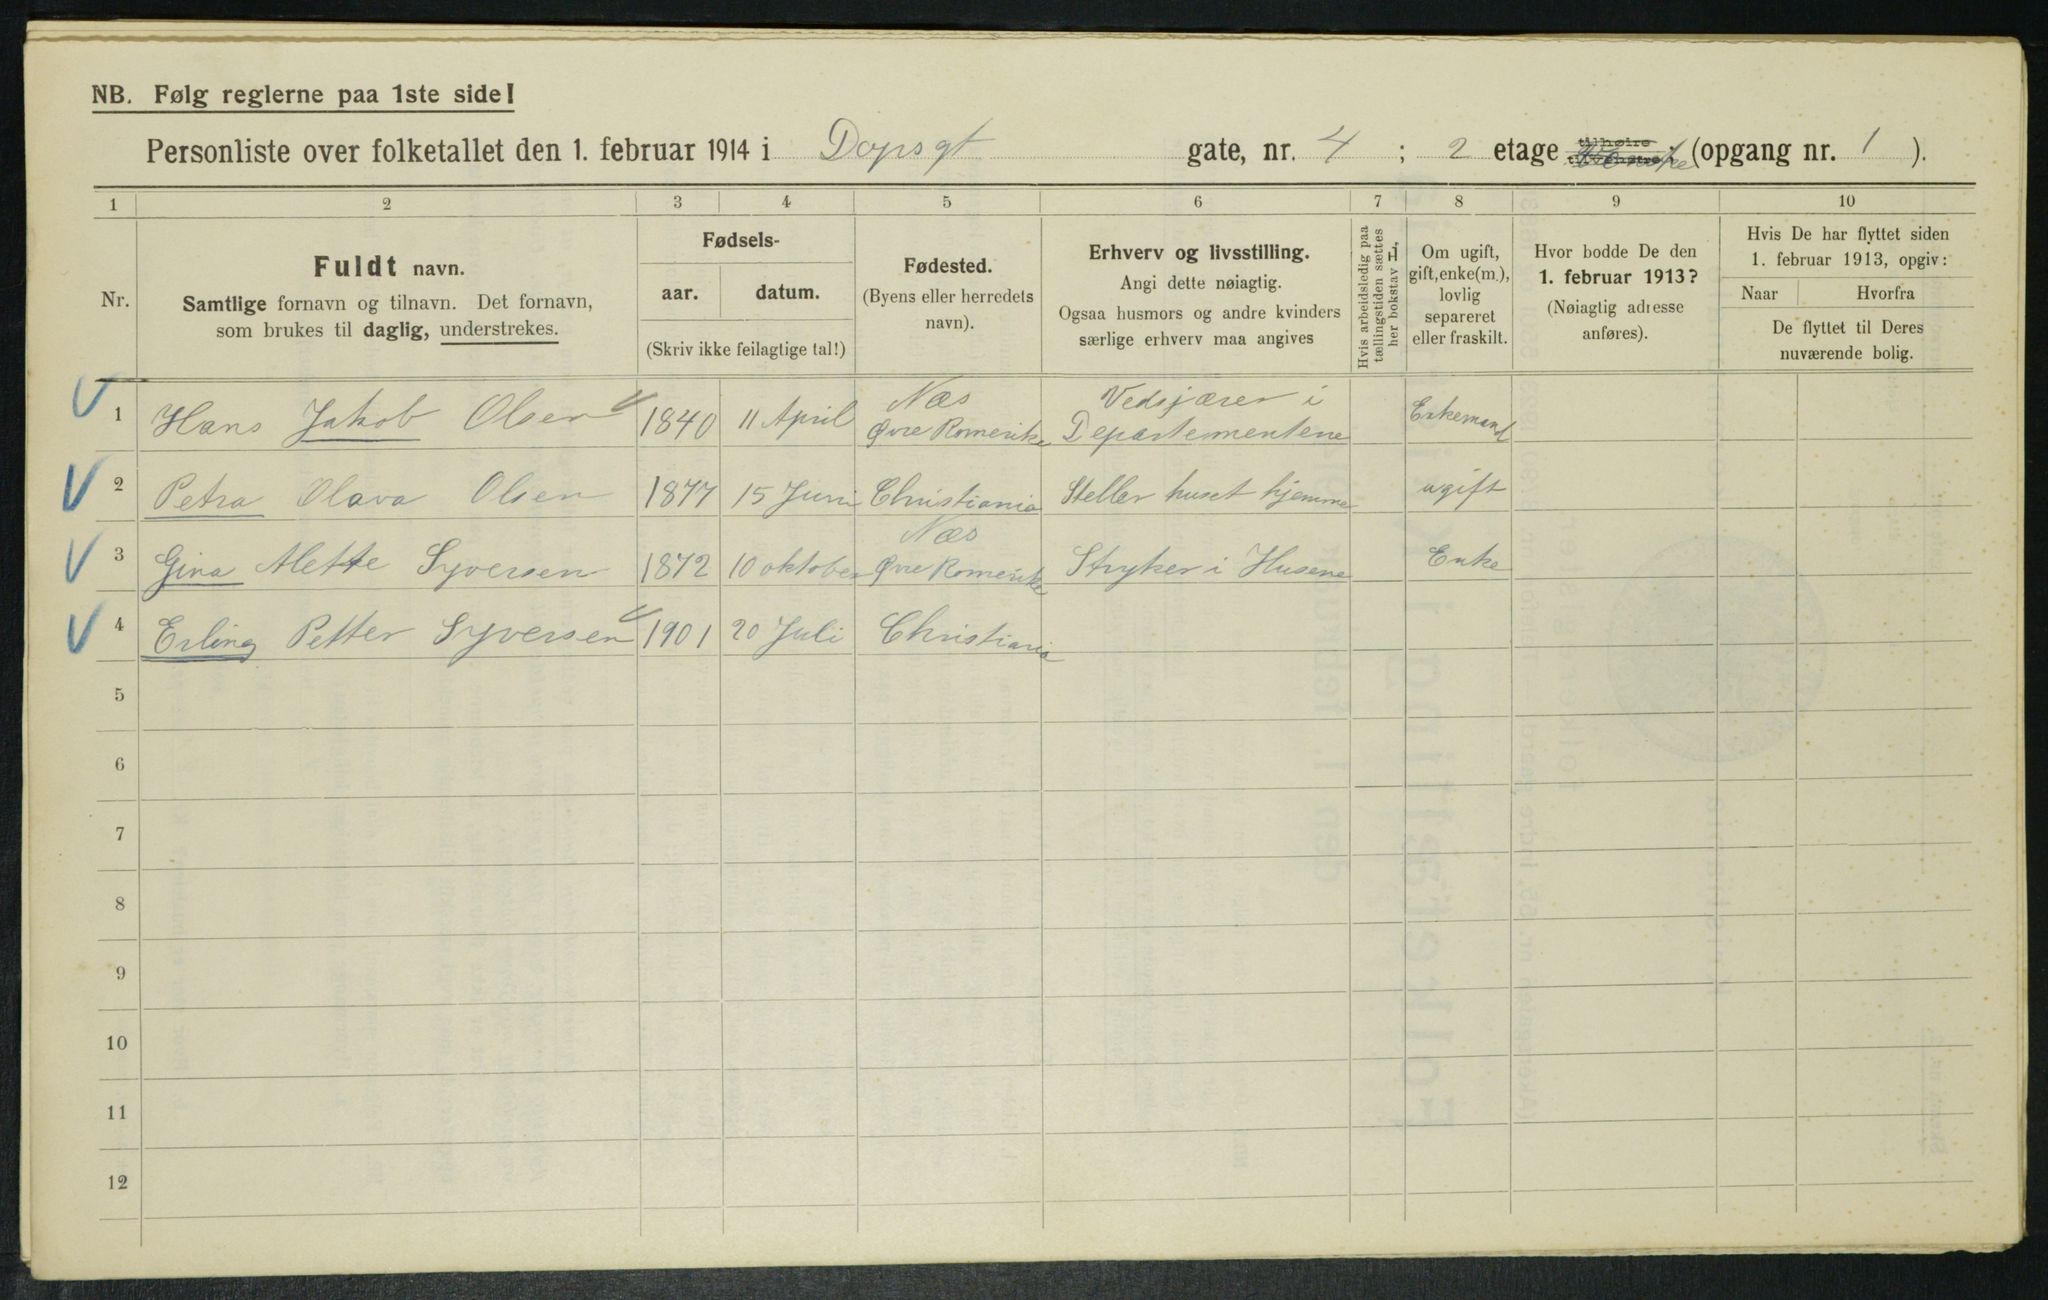 NB. Følg reglerne paa 1ste side!
Personliste over folketallet den 1. februar 1914 i Dopsgt gate, nr. 4 ; 2 etage tilhøire (opgang nr. 1 ).
1 2 3 4 5 6 7 8 9 10
Nr.
Fuldt navn.
Samtlige fornavn og tilnavn. Det fornavn,
som brukes til daglig, understrekes.
Fødsels-
aar. datum.
(Skriv ikke feilagtige tal!)
Fødested.
(Byens eller herredets
navn).
Erhverv og livsstilling.
Angi dette nøiagtig.
Ogsaa husmors og andre kvinders
særlige erhverv maa angives
Hvis arbeidsledig paa
tællingstiden sættes
her bokstav L.
Om ugift,
gift, enke(m.),
lovlig
separeret
eller fraskilt.
Hvor bodde De den
1. februar 1913?
(Nøiagtig adresse
anføres).
Hvis De har flyttet siden
1. februar 1913, opgiv:
Naar Hvorfra
De flyttet til Deres
nuværende bolig.
1 Hans Jakob Olsen 1840 11 April Næs Øvre Romerike Vedsjærer i Departementene Enkemand
2 Petra Olava Olsen 1877 15 Juni Christiania Steller huset hjemme ugift
3 Gina Alette Syversen 1872 10 oktober Næs Øvre Romerike Stryker i Husene Enke
4 Erling Petter Syversen 1901 20 Juli Christiania
5
6
7
8
9
10
11
12